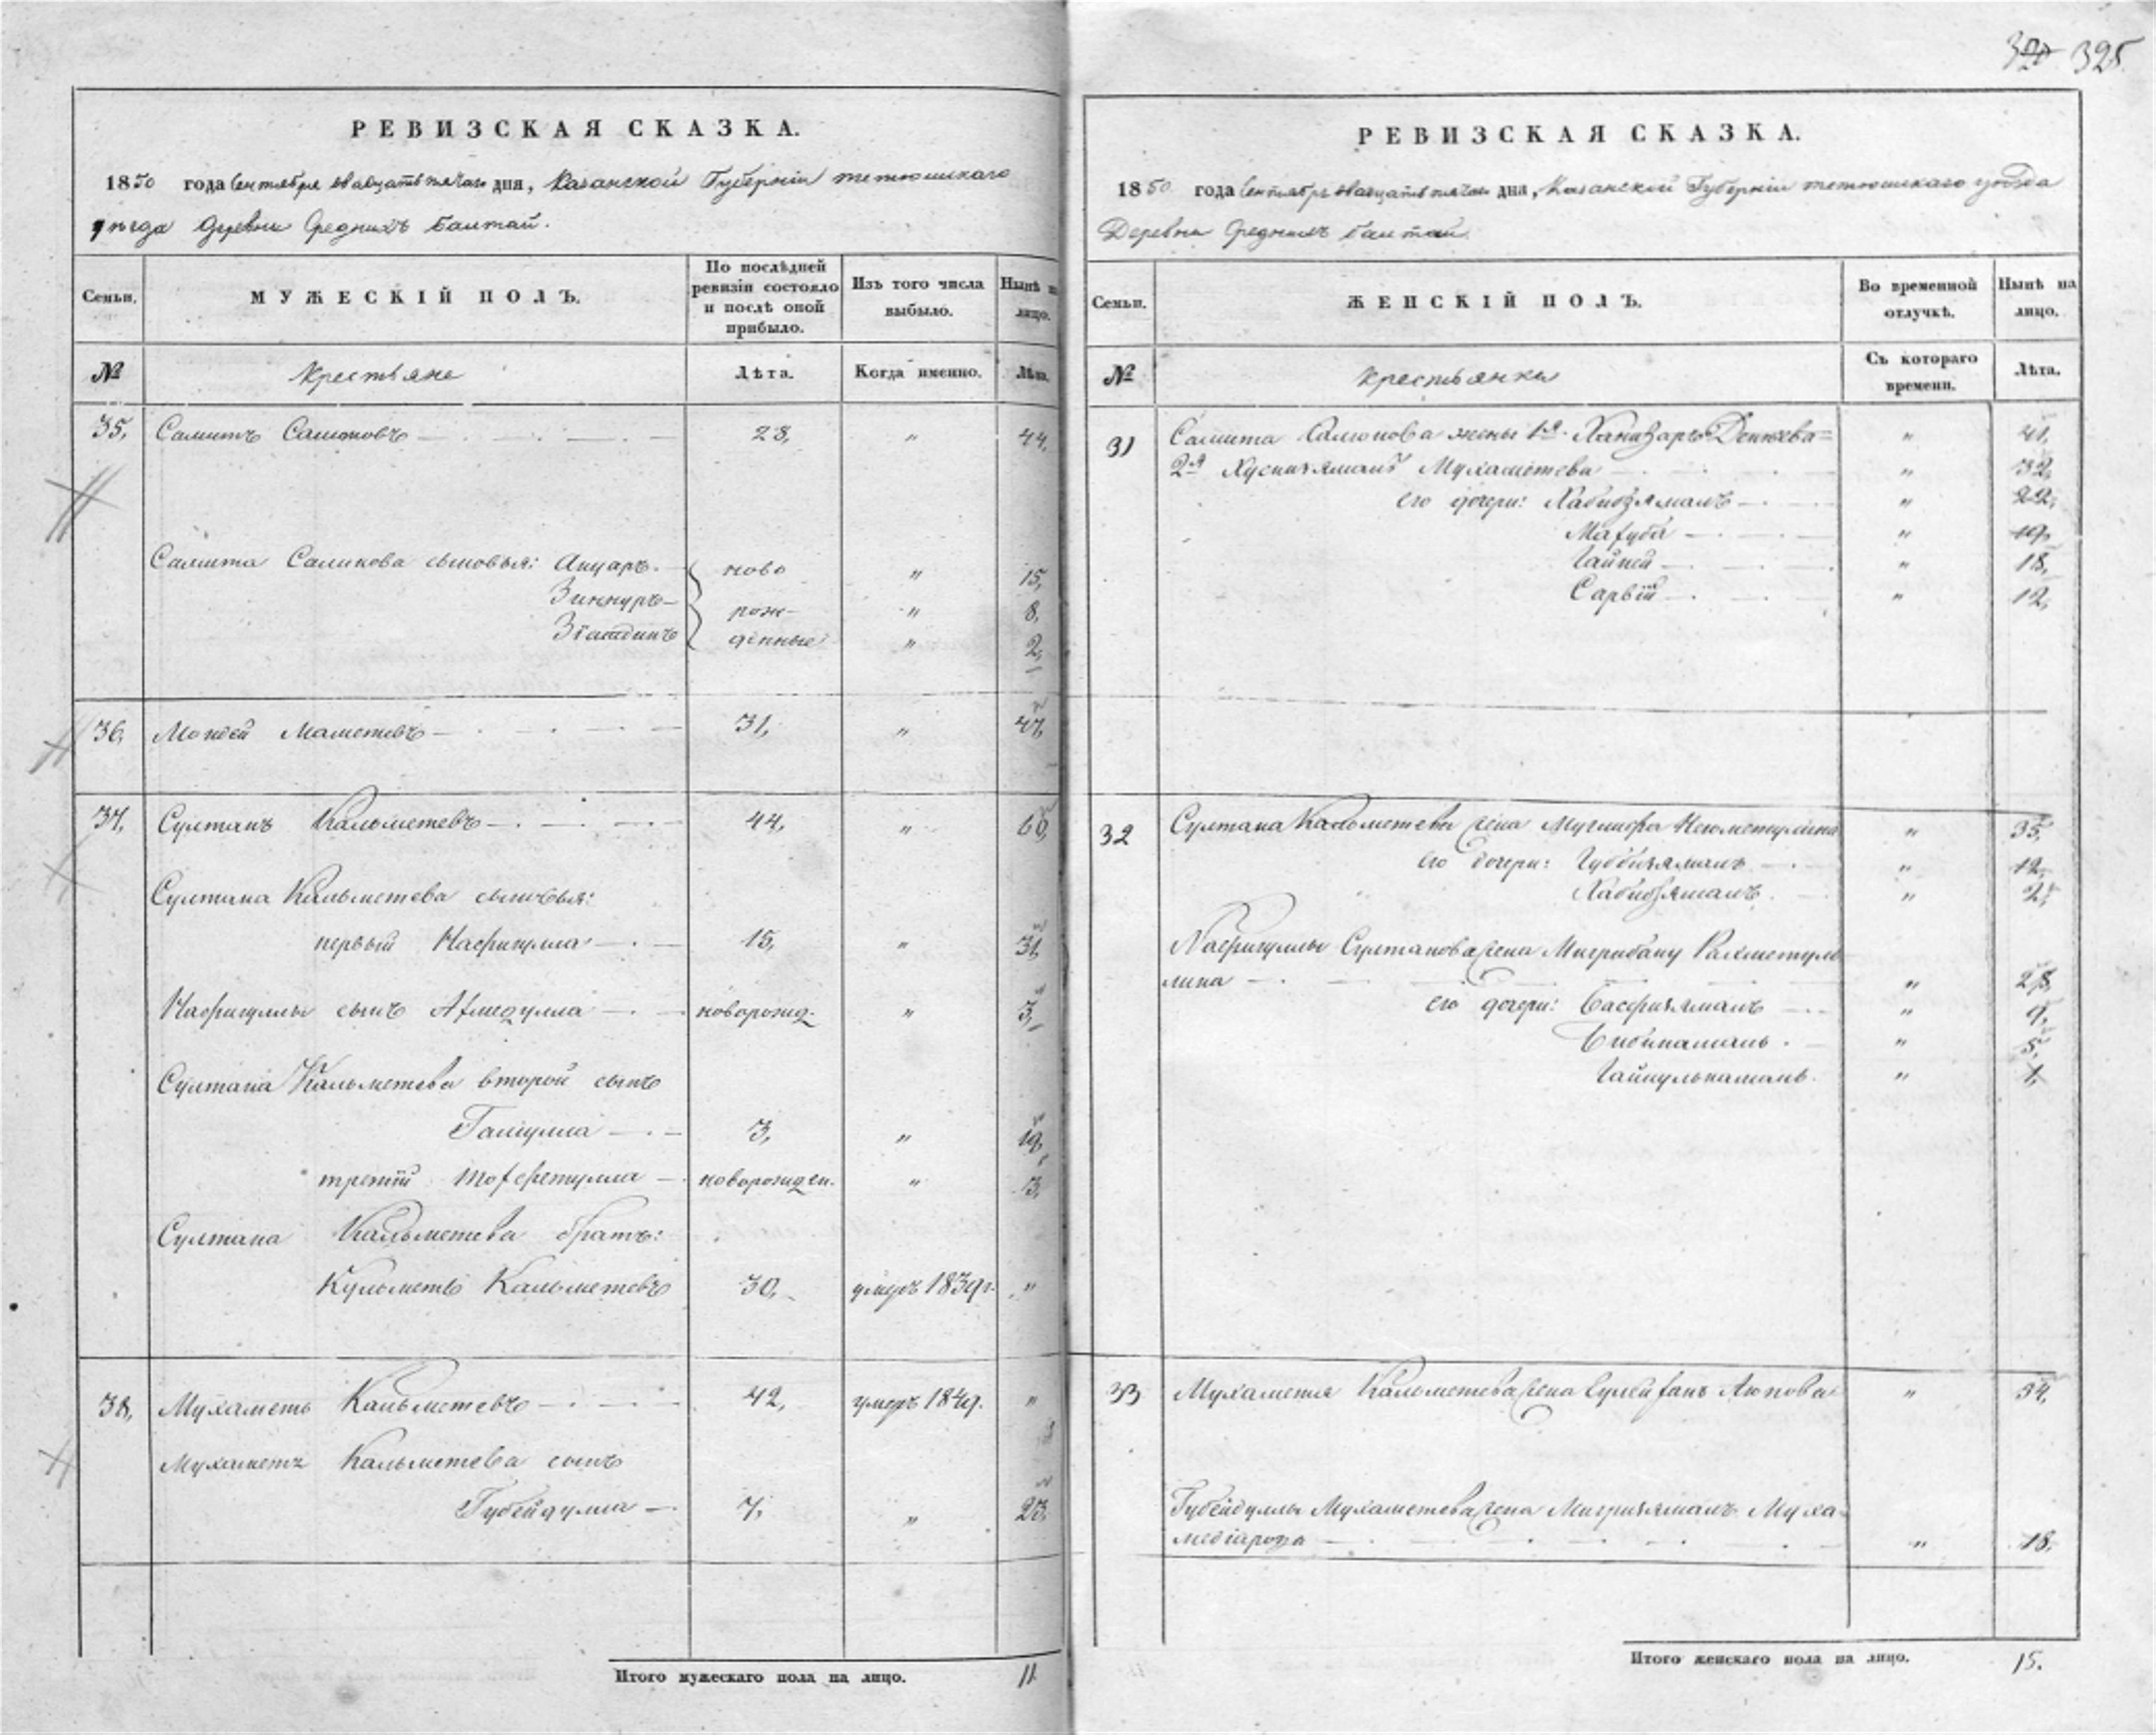 325
РЕВИЗСКАЯ СКАЗКА.
1850 года Сентября двадцать пятаго дня, Казанской Губерніи тетюшскаго
уѣзда Деревни Среднихъ Балтай.
Семьи.
МУЖЕСКІЙ ПОЛЪ.
По послѣдней ревизіи состояло и послѣ оной прибыло.
Изъ того числа выбыло.
Нынѣ на лицо.
№
Крестьяне
Лѣта.
Когда именно.
Лѣта.
35, Самитъ Салиховъ 28, " 44,
Самита Салихова сыновья: Ануаръ ново " 15,
Зиннуръ рож- " 8,
денные " 2,
36, Маметевъ 31, " 47,
37, Султанъ Кальметевъ 44, " 60,
Султана Кальметева сыновья:
первый Насригулла 15, " 31,
Насригуллы сынъ новорожд. " 3,
Султана Кальметева второй сынъ
Галиулла 3, " 19,
третій новорожден. " 3,
Султана Кальметева братъ:
Кульметь Кальметевъ 30, умеръ 1839 г. "
38, Мухаметь Кальметевъ 42, умеръ 1849. "
Мухаметя Кальметева сынъ
Губейдулла 7, " 23,
Итого мужескаго пола на лицо. 11
РЕВИЗСКАЯ СКАЗКА.
1850 года Сентября двадцать пятаго дня, Казанской Губерніи тетюшскаго уѣзда
Деревни Среднихъ Балтай
Семьи.
ЖЕНСКІЙ ПОЛЪ.
Во временной отлучкѣ.
Нынѣ на лицо.
№
Крестьянки
Съ котораго времени.
Лѣта.
31 Самита Салихова жены 1я " 41,
2я Хуснизямалъ Мухаметева " 32,
его дочери: Хабибзямалъ " 22,
Махуба " 19,
" 18,
Сарвій " 12,
32 Султана Кальметева жена " 35,
его дочери: Губбизямалъ " 12,
Хабибзямалъ " 2,
Насригуллы Султанова жена Мигрибану Рахметул-
лина " 28,
его дочери: " 9,
Бибикамаль " 5,
" 1,
33 Мухаметя Кальметева жена Аюпова " 54,
Губейдуллы Мухаметева жена Мигризямалъ Муха-
" 18,
Итого женскаго пола на лицо. 15.